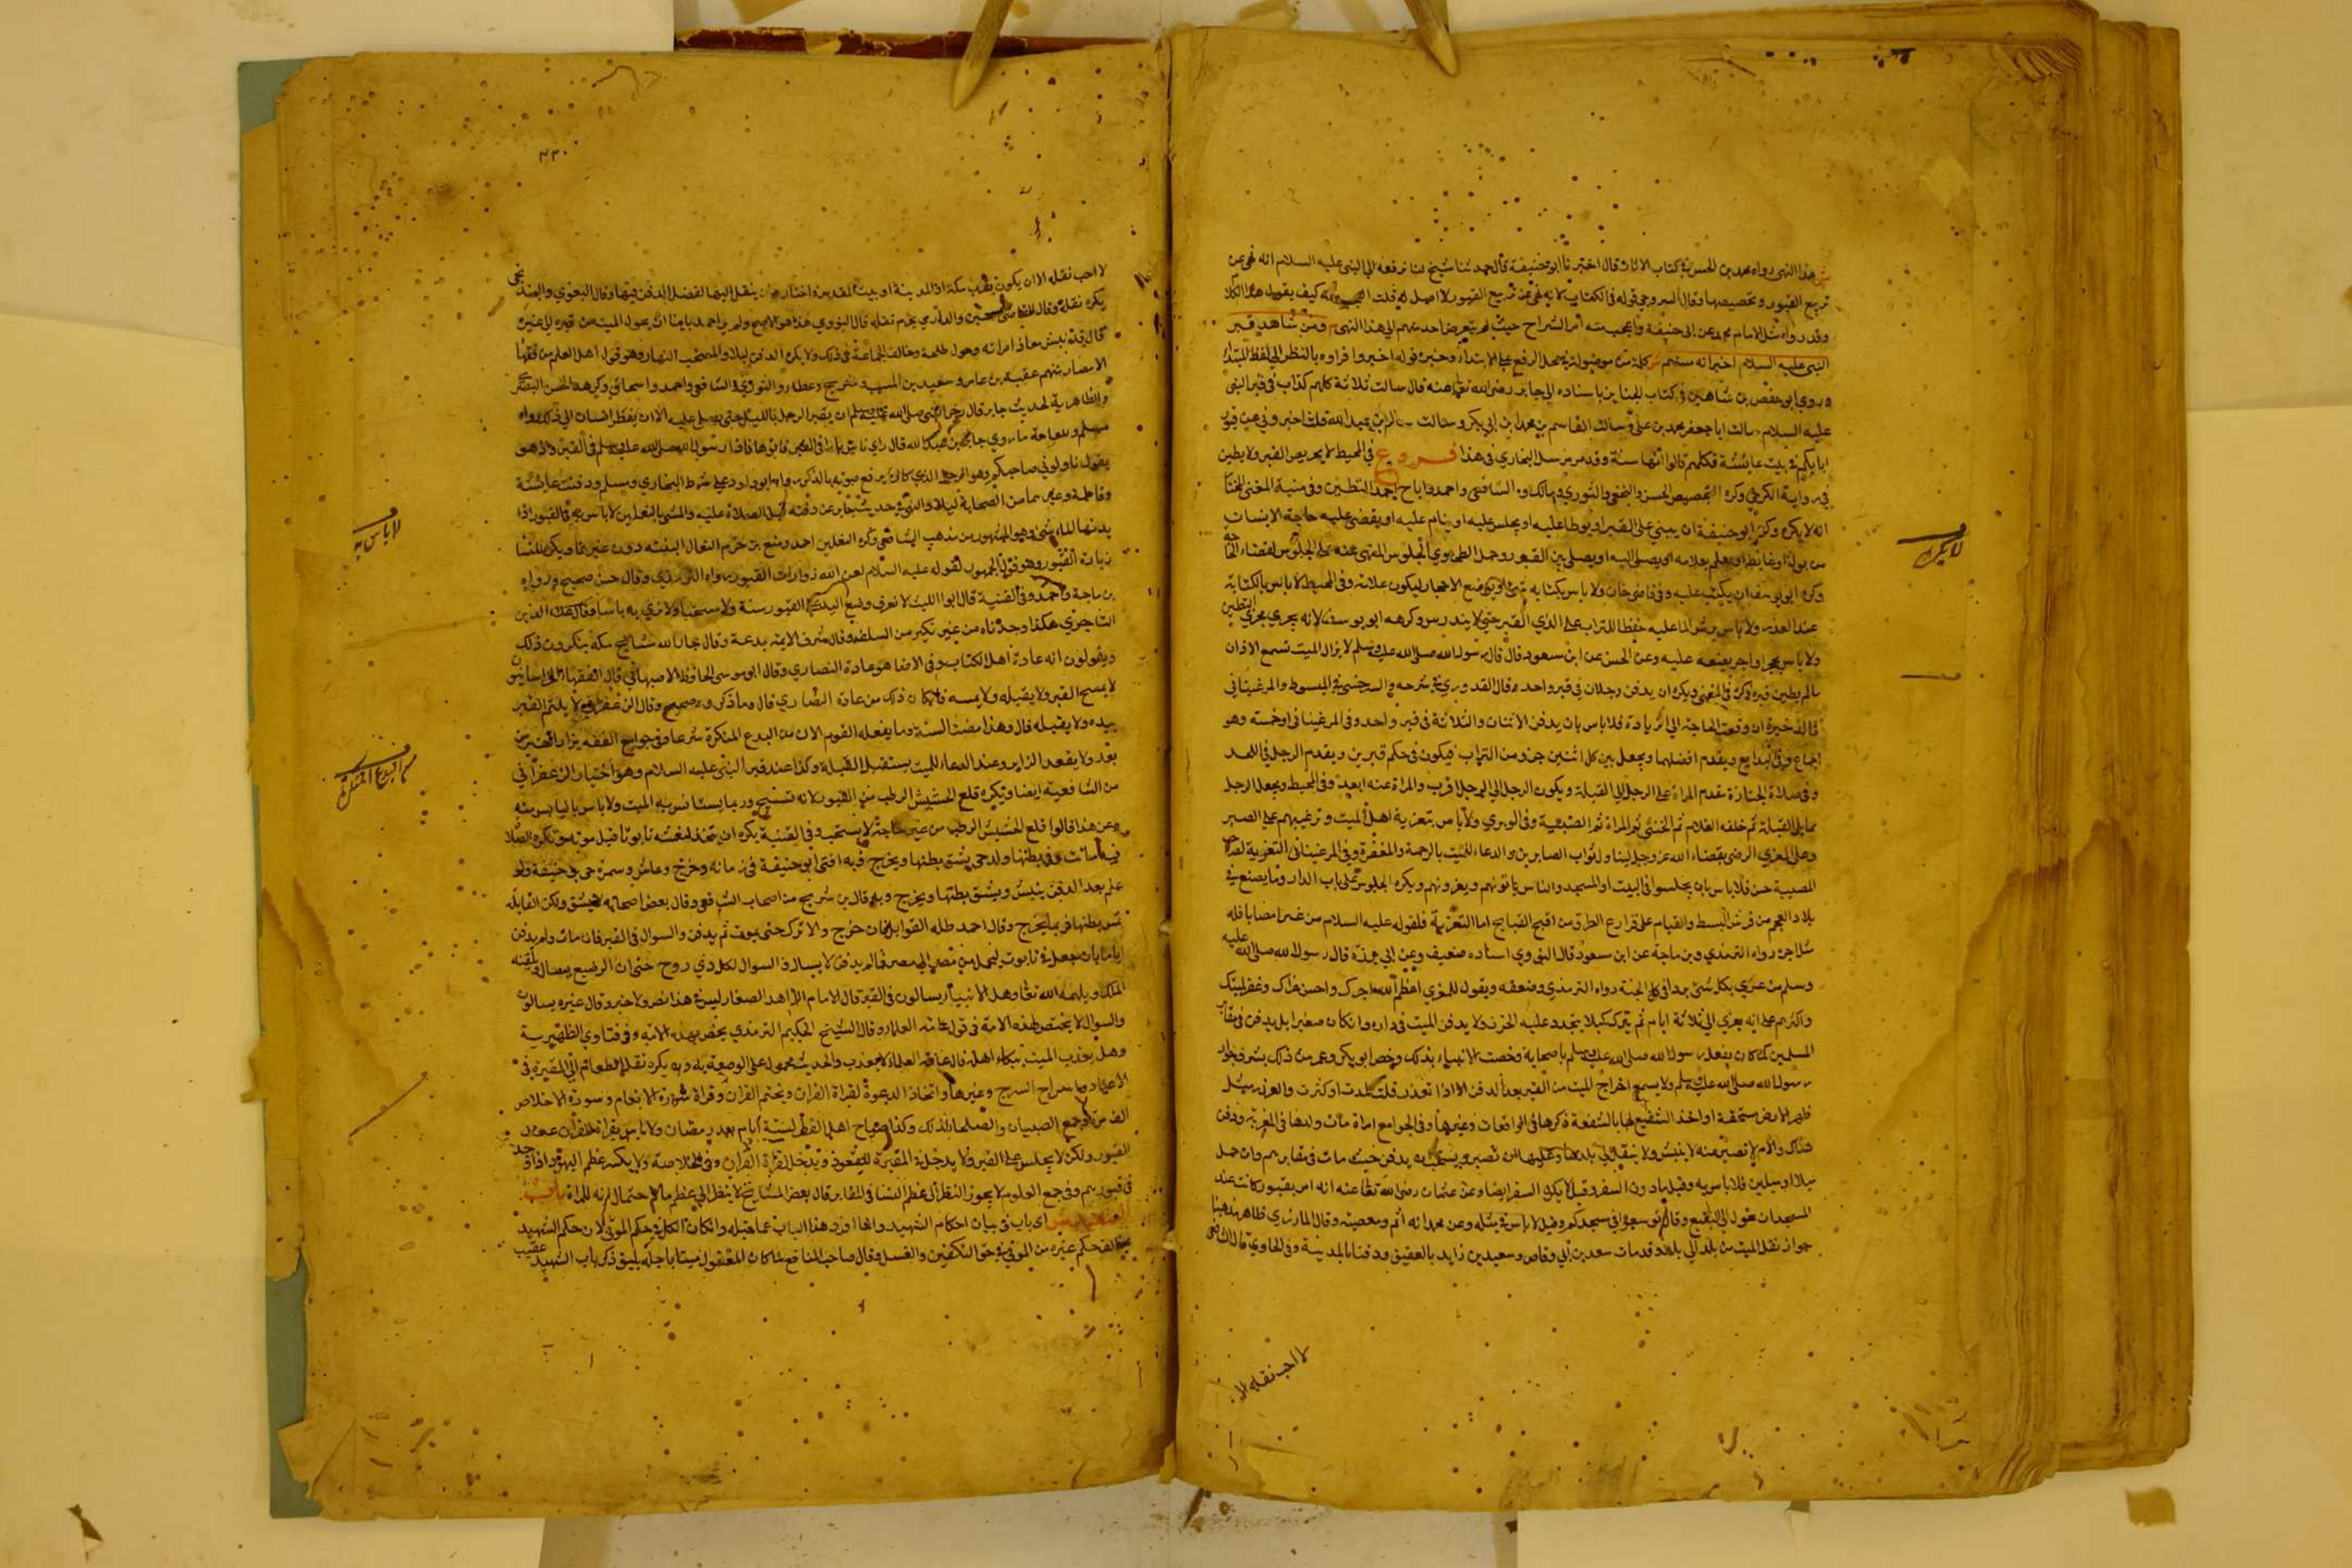 ش هذا النهي رواه محمد بن الحسن في كتاب الاثار قال اخبرنا ابو حنيفة قال حدثنا شيخ لنا يرفعه الى النبي عليه السلام انه نهى عن
تربيع القبور وتجصيصها وقال السروجي قوله في الكتاب لانه نهى عن تربيع القبور لا اصل له قلت كيف يقول هذا الكلام
وقد رواه مثل الامام محمد عن ابي حنيفة واعجب منه أمر الشراح حيث لم يتعرض احد منهم الى هذا النهي م ومن شاهد قبر
النبي عليه السلام اخبر انه مسنم ش كلمة من موصولة في محل الرفع على الابتداء وخبره قوله اخبر وافراده بالنظر الى لفظ المبتدأ
وروى ابو حفص بن شاهين في كتاب الجنايز باسناده الى جابر رضي الله تعالى عنه قال سالت ثلاثة كلهم له اب في قبر النبي
عليه السلام سالت ابا جعفر محمد بن علي وسالت القاسم بن محمد بن ابي بكر وسالت سالم بن عبد الله قلت اخبروني عن قبور
ابايكم في بيت عائشة فكلهم قالوا انها مسنمة وقد مر مرسل البخاري في هذا فروع في المحيط لا يجصص القبر ولا يطين
في رواية الكرخي وكره التجصيص الحسن والنخعي والثوري ومالك والشافعي واحمد واباح احمد التطيين وفي منية المفتي المختار
انه لا يكره وكره ابو حنيفة ان يبنى على القبر او يوطا عليه او يجلس عليه او ينام عليه او يقضى عليه حاجة الانسان
من بول او غائط او يعلم بعلامة او يصلى اليه او يصلى بين القبور وحمل الطحاوي الجلوس المنهي عنه على الجلوس لقضاء الحاجة
وكره ابو يوسف ان يكتب عليه وفي قاضي خان ولا باس بكتابة شئ او بوضع الاحجار ليكون علامة وفي المحيط لا باس بالكتابة
عند العذر ولا باس برش الماء عليه حفظا للتراب على الذي القبر حتى لا يندرس وكرهه ابو يوسف لانه يجري مجرى التطيين
ولا باس بحجر او اجر يضعه عليه وعن الحسن عن ابن مسعود قال قال رسول الله صلى الله عليه وسلم لا يزال الميت تسمع الاذان
مالم يطين قبره ذكره في المغني ويكره ان يدفن رجلان في قبر واحد وقال القدوري في شرحه والسرخسي في المبسوط والمرغيناني
في الذخيرة ان وقعت الحاجة الى الزيادة فلا باس بان يدفن الاثنان والثلاثة في قبر واحد وفي المرغيناني او خمسة وهو
اجماع وفي البدايع ويقدم افضلهما ويجعل بين كل اثنين حاجز من التراب فيكون في حكم قبرين ويقدم الرجل في اللحد
وفي صلاة الجنازة تقدم المراة على الرجل الى القبلة ويكون الرجل الى الرجل اقرب والمراة عنه ابعد وفي المحيط ويجعل الرجل
مما يلي القبلة ثم خلفه الغلام ثم الخنثى ثم المراة ثم الصبية وفي الوبري ولا باس بتعزية اهل الميت وترغيبهم على الصبر
وعلى المعزي الرضى بقضاء الله عز وجل لينال ثواب الصابرين والدعاء للميت بالرحمة والمغفرة وفي المرغيناني التعزية لصاحب
المصيبة حسن فلا باس بان يجلسوا في البيت او المسجد والناس ياتونهم ويعزونهم ويكره الجلوس على باب الدار وما يصنع في
بلاد العجم من فرش البسط والقيام على قوارع الطرق من اقبح القبايح اما التعزية فلقوله عليه السلام من عزى مصابا فله
مثل اجره رواه الترمذي وبن ماجة عن ابن مسعود قال النووي اسناده ضعيف وعن ابي برزة قال رسول الله صلى الله عليه
وسلم من عزى ثكلى كسي بردا في الجنة رواه الترمذي وضعفه ويقول للمعزى اعظم الله اجرك واحسن عزاك وغفر لميتك
واكثرهم على انه يعزى الى ثلاثة ايام ثم يترك كيلا يتجدد عليه الحزن ولا يدفن الميت في داره وان كان صغيرا بل يدفن في مقابر
المسلمين كما كان يفعل رسول الله صلى الله عليه وسلم باصحابه وخصت الانبياء بذلك وخص ابو بكر وعمر من ذلك بشرف جوار
رسول الله صلى الله عليه وسلم ولا يسع اخراج الميت من القبر بعد الدفن الا اذا تعذر قلت المدة او كثرت والعذر مثل
ظهور الارض مستحقة او اخذ الشفيع لها بالشفعة ذكرها في الواقعات وغيرها وفي الجوامع امراة مات ولدها في الغربة ودفن
هناك والام لا تصبر عنه لا ينبش ولا ينقل الى بلدها وعليها ان تصبر ويستحب ان يدفن حيث مات في مقابرهم وان حمل
ميلا او ميلين فلا باس به وقيل ما دون السفر وقيل لا يكره السفر ايضا وعن عثمان رضي الله تعالى عنه انه امر بقبور كانت عند
المسجد ان تحول الى البقيع وقال توسعوا في مسجدكم وقيل لا باس في مثله وعن محمد انه اثم ومعصية وقال المازري ظاهر مذهبنا
جواز نقل الميت من بلد الى بلد وقد مات سعد بن ابي وقاص وسعيد بن زايد بالعقيق ودفنا بالمدينة وفي الحاوي قال الشافعي
لا يكره
لا احب نقله الا
٤٣٠
لا احب نقله الا ان يكون بقرب مكة او المدينة او بيت المقدس واختار ان ينقل اليها لفضل الدفن فيها وقال البغوي والبندنيجي
يكره نقله وقال القاضي حسين والدارمي يحرم نقله قال النووي هذا هو الاصح ولم ير احمد باسا ان يحول الميت من قبره الى غيره
قال قد نبش معاذ امراته وحول طلحة وخالف الجماعة في ذلك ولا يكره الدفن ليلا والمستحب النهار وهو قول اهل العلم من فقهاء
الامصار منهم عقبة بن عامر وسعيد بن المسيب وشريح وعطاء والثوري والشافعي واحمد واسحاق وكرهه الحسن البصري
والظاهرية لحديث جابر قال زجر النبي صلى الله عليه وسلم ان يقبر الرجل بالليل حتى يصلى عليه الا ان يضطر انسان الى ذلك رواه
مسلم وللعامة ما روي جابر بن عبد الله قال راى ناس نارا في القبر فاتوها فاذا رسول الله صلى الله عليه وسلم في القبر واذ هو
يقول ناولوني صاحبكم وهو الرجل الذي كان يرفع صوته بالذكر رواه ابو داود على شرط البخاري ومسلم ودفنت عائشة
وفاطمة وغيرهما من الصحابة ليلا والنهي في حديث جابر عن دفنه قبل الصلاة عليه والمشي بالنعلين لا باس به في القبور اذا
زيارة القبور وهو قول الجمهور لقوله عليه السلام لعن الله زوارات القبور رواه الترمذي وقال حسن صحيح ورواه
بن ماجة واحمد وفي القنية قال ابو الليث لا نعرف وضع اليد على القبور سنة ولا مستحبا ولا نرى به باسا وقال علاء الدين
التاجري هكذا وجدناه من غير نكير من السلف وقال شرف الايمة بدعة وقال جار الله مشايخ مكة ينكرون ذلك
ويقولون انه عادة اهل الكتاب وفي الاحيا هو عادة النصارى وقال ابو موسى الحافظ الاصبهاني قال الفقهاء الخراسانيون
لا يمسح القبر ولا يقبله ولا يمسه فان كان ذلك من عادة النصارى قال وما ذكروه صحيح وقال الزعفراني لا يلثم القبر
بيده ولا يقبله قال وهذا مضت السنة وما يفعله القوم الان من البدع المنكرة شرعا وفي جوامع الفقه يزار القبر من
بعد ولا يقعد الزاير وعند الدعاء للميت يستقبل القبلة وكذا عند قبر النبي عليه السلام وهو اختيار الزعفراني
من الشافعية ايضا ويكره قلع الحشيش الرطب من القبور لانه تسبيح وربما يستانس به الميت ولا باس باليابس منه
وعن هذا قالوا قلع الحشيش الرطب من غير حاجة لا يستحب وفي القنية يكره ان يتخذ لنفسه تابوتا قبل موته وتكره الصلاة
فيه ماتت وفي بطنها ولد حي يشق بطنها ويخرج وبه افتى ابو حنيفة في زمانه وخرج وعاش
علم بعد الدفن ينبش ويشق بطنها ويخرج وبه قال بن شريح من اصحاب الشافعي وقال بعض اصحابه لا يشق ولكن القابلة
تمس بطنها فربما يخرج وقال احمد القوابل فان خرج والا ترك حتى يموت ثم يدفن والسوال في القبر فان مات ولم يدفن
اياما بان جعل في تابوت ليحمل من مصر الى مصر فمالم يدفن لا يسال والسوال لكل ذي روح حتى ان الرضيع يسال ويلقنه
الملك او يلهمه الله تعالى وهل الانبياء يسالون في القبر قال الامام الزاهد الصفار ليس في هذا نص ولا خبر وقال غيره يسالون
والسوال لا يختص بهذه الامة في قول عامة العلماء وقال الشيخ الحكيم الترمذي يختص بهذه الامة وفي فتاوي الظهيرية
وهل يعذب الميت ببكاء اهله قال عامة العلماء لا يعذب والحديث محمول على الوصية به ويكره نقل الطعام الى المقبرة في
الاعياد واسراج السرج وغيرها واتخاذ الدعوة لقراة القران ويختم القران وقراة سورة الانعام وسورة الاخلاص
الف مرة وجمع الصبيان والصلحاء لذلك
القبور ولكن لا يجلس على القبر ولا يدخل في المقبرة للقعود ويدخل لقراة القران وفي الخلاصة ولا يكسر عظم اليهود اذا وجد
في قبورهم وفي جمع العلوم لا يجوز النظر الى عظم النسا في المقابر قال بعض المشايخ لا ينظر الى عظم ما لاحتمال انه للمراة باب
الشهيد ش اى باب في بيان احكام الشهيد وانما افرد هذا الباب عما قبله وان كان الكل في حكم الموتى لان حكم الشهيد
يخالف حكم غيره من الموتى في حق التكفين والغسل وقال صاحب المنافع لما كان المقتول ميتا باجله يليق ذكر باب الشهيد عقيب
لا باس به